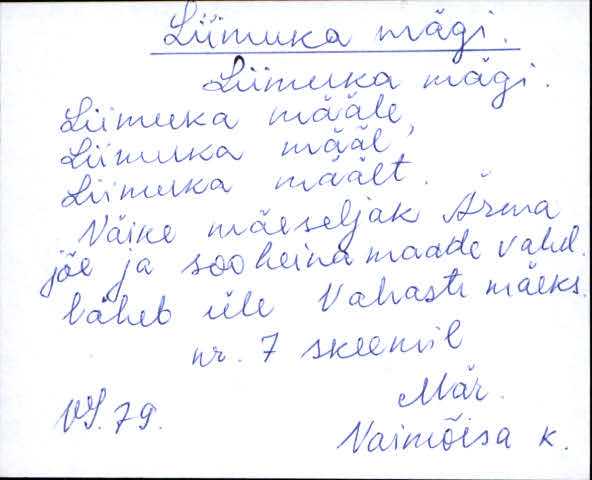 Liimuka mägi.
Liimuka mägi.
Liimuka määle,
Liimuka määl,
Liimuka mäält.
Väike mäeseljak Ärma
jõe ja sooheinamaade vahel.
läheb üle Vahasti mäeks.
nr. 7 skeemil
Mär.
VS. 79.
Vaimõisa k.